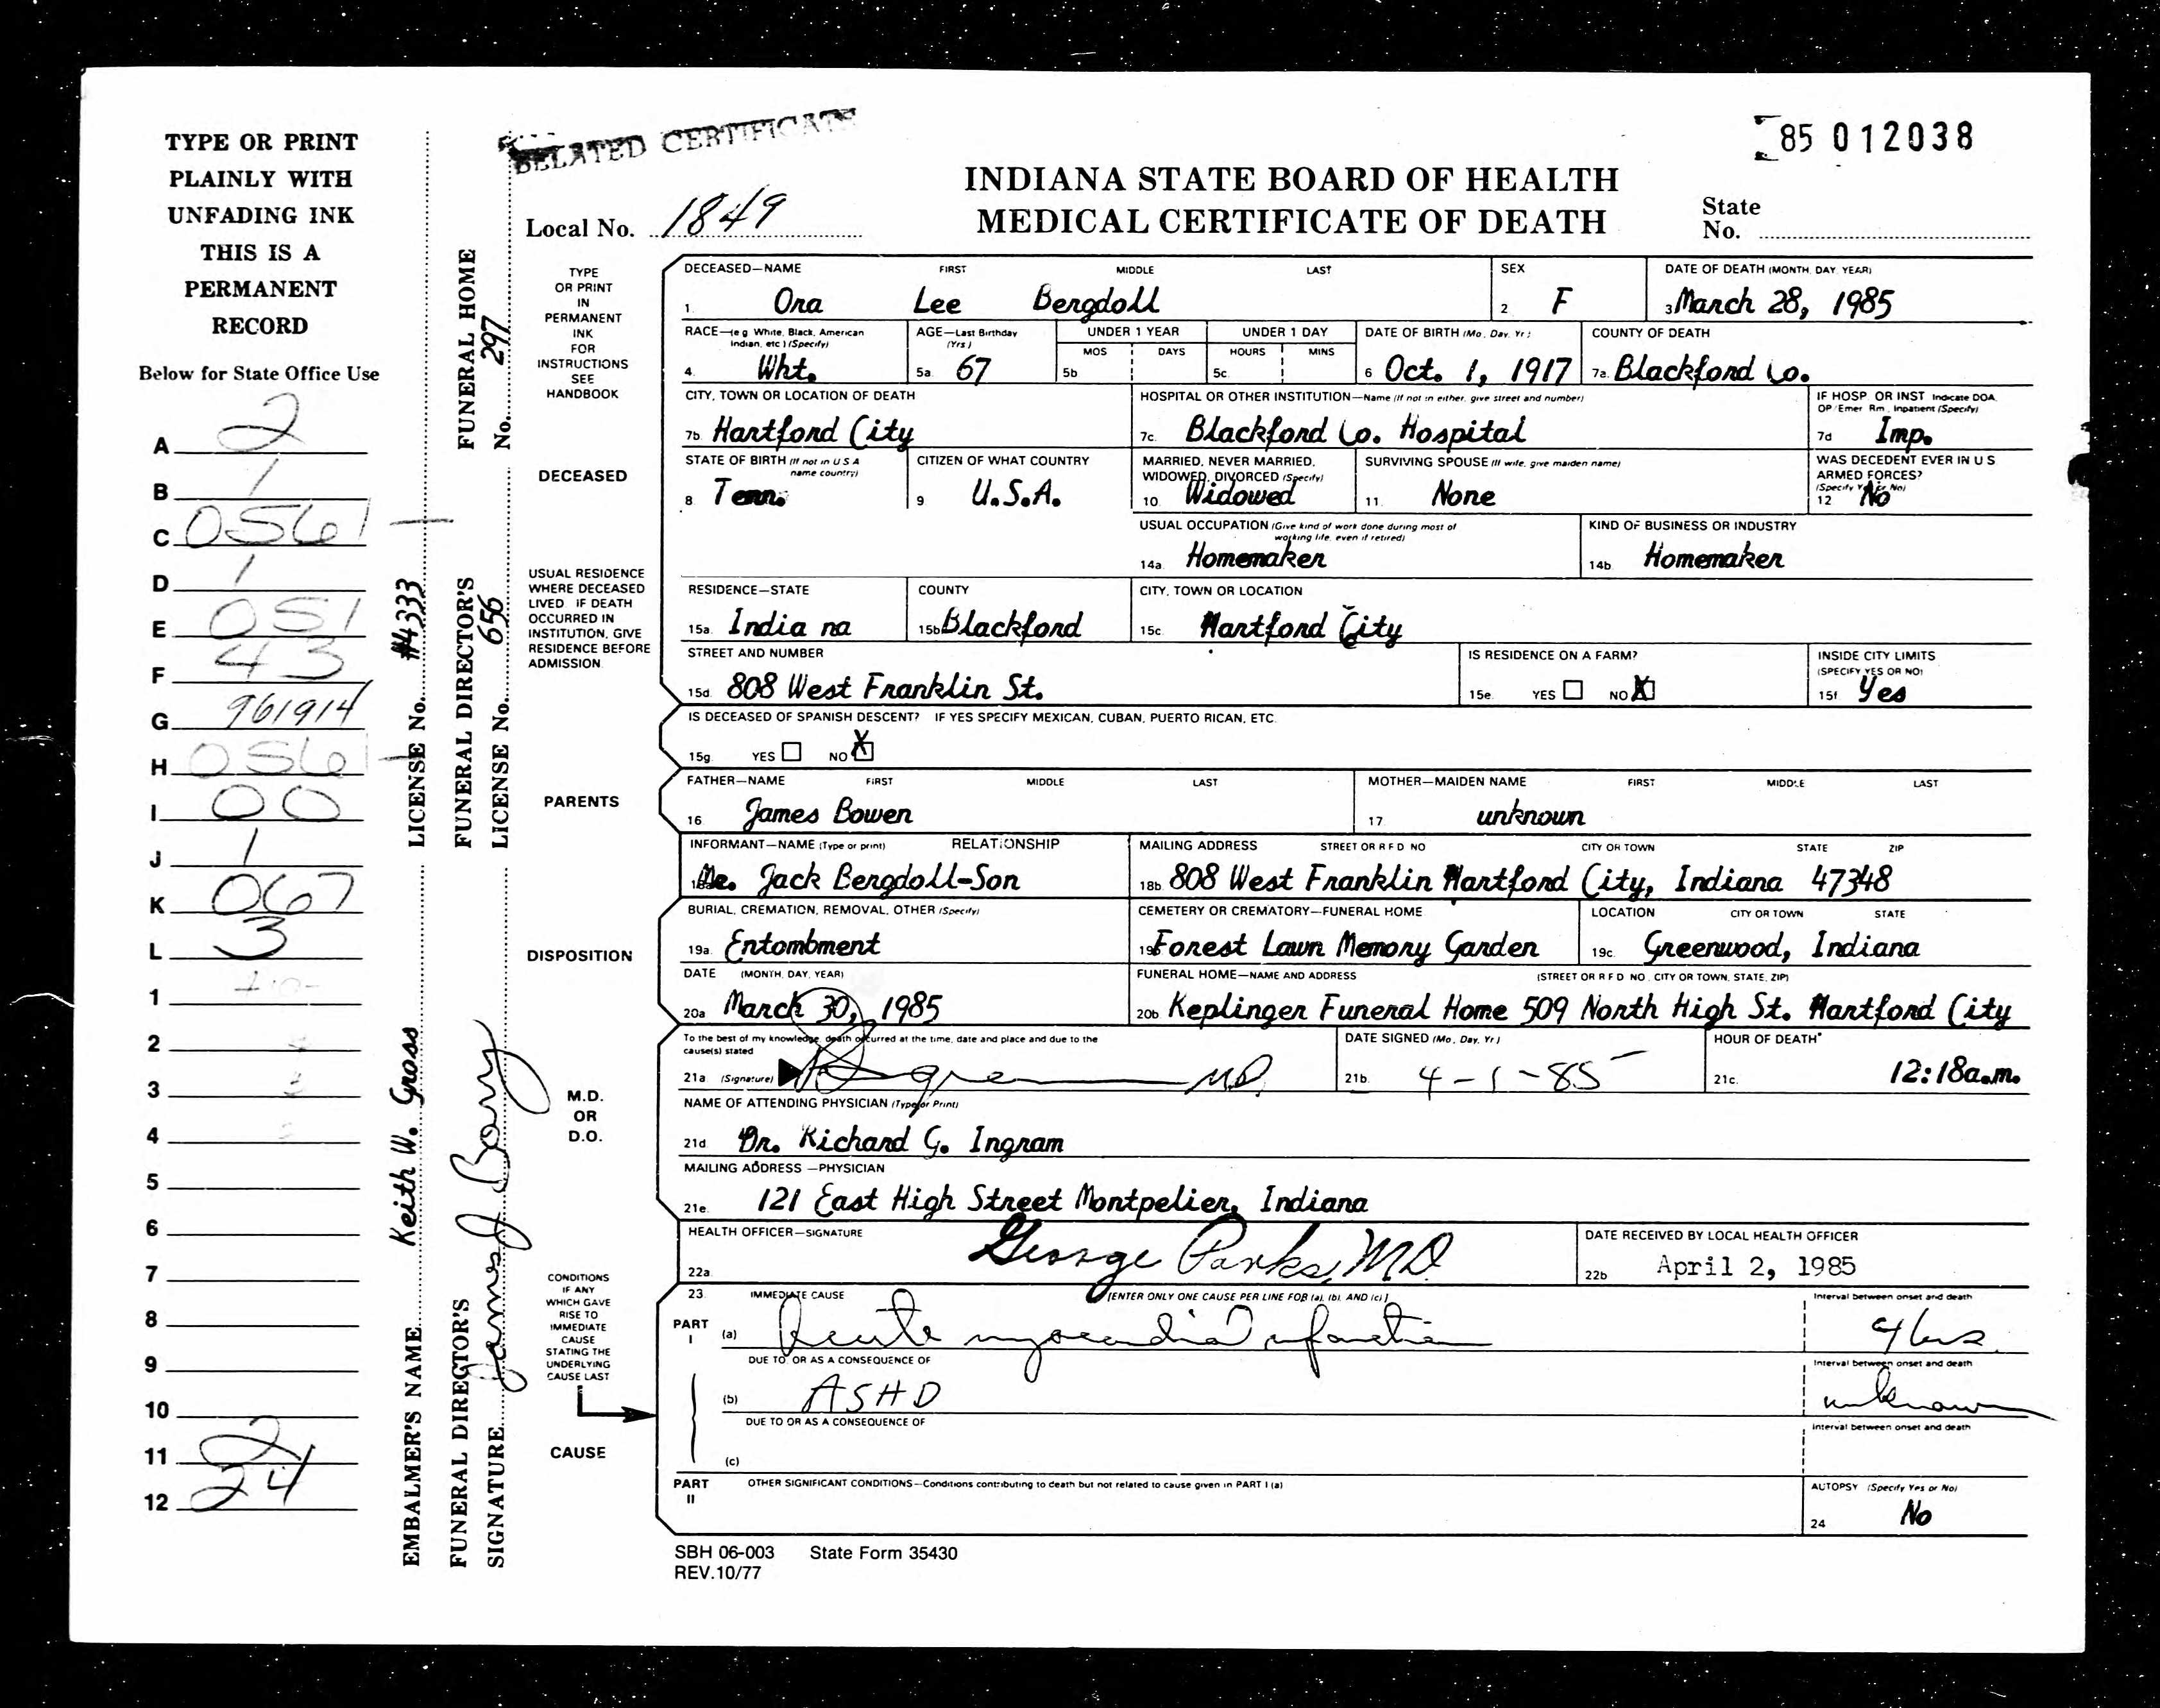 BELATED CERTIFICATE
85 012038
INDIANA STATE BOARD OF HEALTH
MEDICAL CERTIFICATE OF DEATH
Local No. 1849
State No.
TYPE OR PRINT
PLAINLY WITH
UNFADING INK
THIS IS A
PERMANENT
RECORD
Below for State Office Use
A 2
B 1
C 0561
D 1
E 051
F 43
G 961914
H 0561
I 00
J 1
K 067
L 3
1
2
3
4
5
6
7
8
9
10
11 2
12 24
EMBALMER'S NAME Keith W. Gross LICENSE No. #4333
FUNERAL DIRECTOR'S SIGNATURE James J Bory
FUNERAL DIRECTOR'S LICENSE No. 656
FUNERAL HOME No. 297
TYPE
OR PRINT
IN
PERMANENT
INK
FOR
INSTRUCTIONS
SEE
HANDBOOK
DECEASED
DECEASED—NAME FIRST MIDDLE LAST
1. Ora Lee Bergdoll
SEX
2. F
DATE OF DEATH (MONTH, DAY, YEAR)
3. March 28, 1985
RACE—(e.g. White, Black, American Indian, etc.) (Specify)
4. Wht.
AGE—Last Birthday (Yrs.)
5a. 67
UNDER 1 YEAR
MOS DAYS
5b
UNDER 1 DAY
HOURS MINS
5c.
DATE OF BIRTH (Mo., Day, Yr.)
6 Oct. 1, 1917
COUNTY OF DEATH
7a. Blackford Co.
CITY, TOWN OR LOCATION OF DEATH
7b. Hartford City
HOSPITAL OR OTHER INSTITUTION—Name (If not in either, give street and number)
7c. Blackford Co. Hospital
IF HOSP. OR INST. Indicate DOA, OP/Emer. Rm., Inpatient (Specify)
7d Imp.
STATE OF BIRTH (If not in U.S.A. name country)
8. Tenn.
CITIZEN OF WHAT COUNTRY
9 U.S.A.
MARRIED, NEVER MARRIED, WIDOWED, DIVORCED (Specify)
10. Widowed
SURVIVING SPOUSE (If wife, give maiden name)
11. None
WAS DECEDENT EVER IN U.S. ARMED FORCES? (Specify Yes or No)
12 No
USUAL OCCUPATION (Give kind of work done during most of working life, even if retired)
14a. Homemaker
KIND OF BUSINESS OR INDUSTRY
14b. Homemaker
USUAL RESIDENCE
WHERE DECEASED
LIVED. IF DEATH
OCCURRED IN
INSTITUTION, GIVE
RESIDENCE BEFORE
ADMISSION.
RESIDENCE—STATE
15a. India na
COUNTY
15b Blackford
CITY, TOWN OR LOCATION
15c. Hartford City
STREET AND NUMBER
15d. 808 West Franklin St.
IS RESIDENCE ON A FARM?
15e. YES NO X
INSIDE CITY LIMITS (SPECIFY YES OR NO)
15f Yes
IS DECEASED OF SPANISH DESCENT? IF YES SPECIFY MEXICAN, CUBAN, PUERTO RICAN, ETC.
15g. YES NO X
PARENTS
FATHER—NAME FIRST MIDDLE LAST
16 James Bowen
MOTHER—MAIDEN NAME FIRST MIDDLE LAST
17 unknown
INFORMANT—NAME (Type or print) RELATIONSHIP
Mr. Jack Bergdoll-Son
MAILING ADDRESS STREET OR R.F.D. NO. CITY OR TOWN STATE ZIP
18b. 808 West Franklin Hartford City, Indiana 47348
DISPOSITION
BURIAL, CREMATION, REMOVAL, OTHER (Specify)
19a. Entombment
CEMETERY OR CREMATORY—FUNERAL HOME
19b Forest Lawn Memory Garden
LOCATION CITY OR TOWN STATE
19c. Greenwood, Indiana
DATE (MONTH, DAY, YEAR)
20a March 30, 1985
FUNERAL HOME—NAME AND ADDRESS (STREET OR R.F.D. NO., CITY OR TOWN, STATE, ZIP)
20b Keplinger Funeral Home 509 North High St. Hartford City
M.D.
OR
D.O.
To the best of my knowledge, death occurred at the time, date and place and due to the cause(s) stated
21a. (Signature) M.D.
DATE SIGNED (Mo., Day, Yr.)
21b. 4-1-85
HOUR OF DEATH
21c. 12:18a.m.
NAME OF ATTENDING PHYSICIAN (Type or Print)
21d Dr. Richard G. Ingram
MAILING ADDRESS—PHYSICIAN
21e. 121 East High Street Montpelier, Indiana
HEALTH OFFICER—SIGNATURE
22a George Parks, MD
DATE RECEIVED BY LOCAL HEALTH OFFICER
22b April 2, 1985
CONDITIONS
IF ANY
WHICH GAVE
RISE TO
IMMEDIATE
CAUSE
STATING THE
UNDERLYING
CAUSE LAST
CAUSE
23. IMMEDIATE CAUSE [ENTER ONLY ONE CAUSE PER LINE FOR (a), (b), AND (c)]
PART I (a) Acute myocardial infarction
Interval between onset and death
4 hrs.
DUE TO, OR AS A CONSEQUENCE OF
(b) ASHD
Interval between onset and death
unknown
DUE TO OR AS A CONSEQUENCE OF
(c)
Interval between onset and death
PART II OTHER SIGNIFICANT CONDITIONS—Conditions contributing to death but not related to cause given in PART I (a)
AUTOPSY (Specify Yes or No)
24 No
SBH 06-003 State Form 35430
REV.10/77